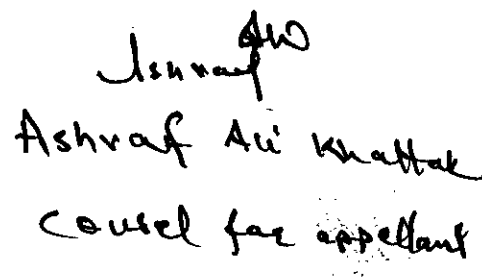 Ashraf Ali Khattak
Cousel for appellant